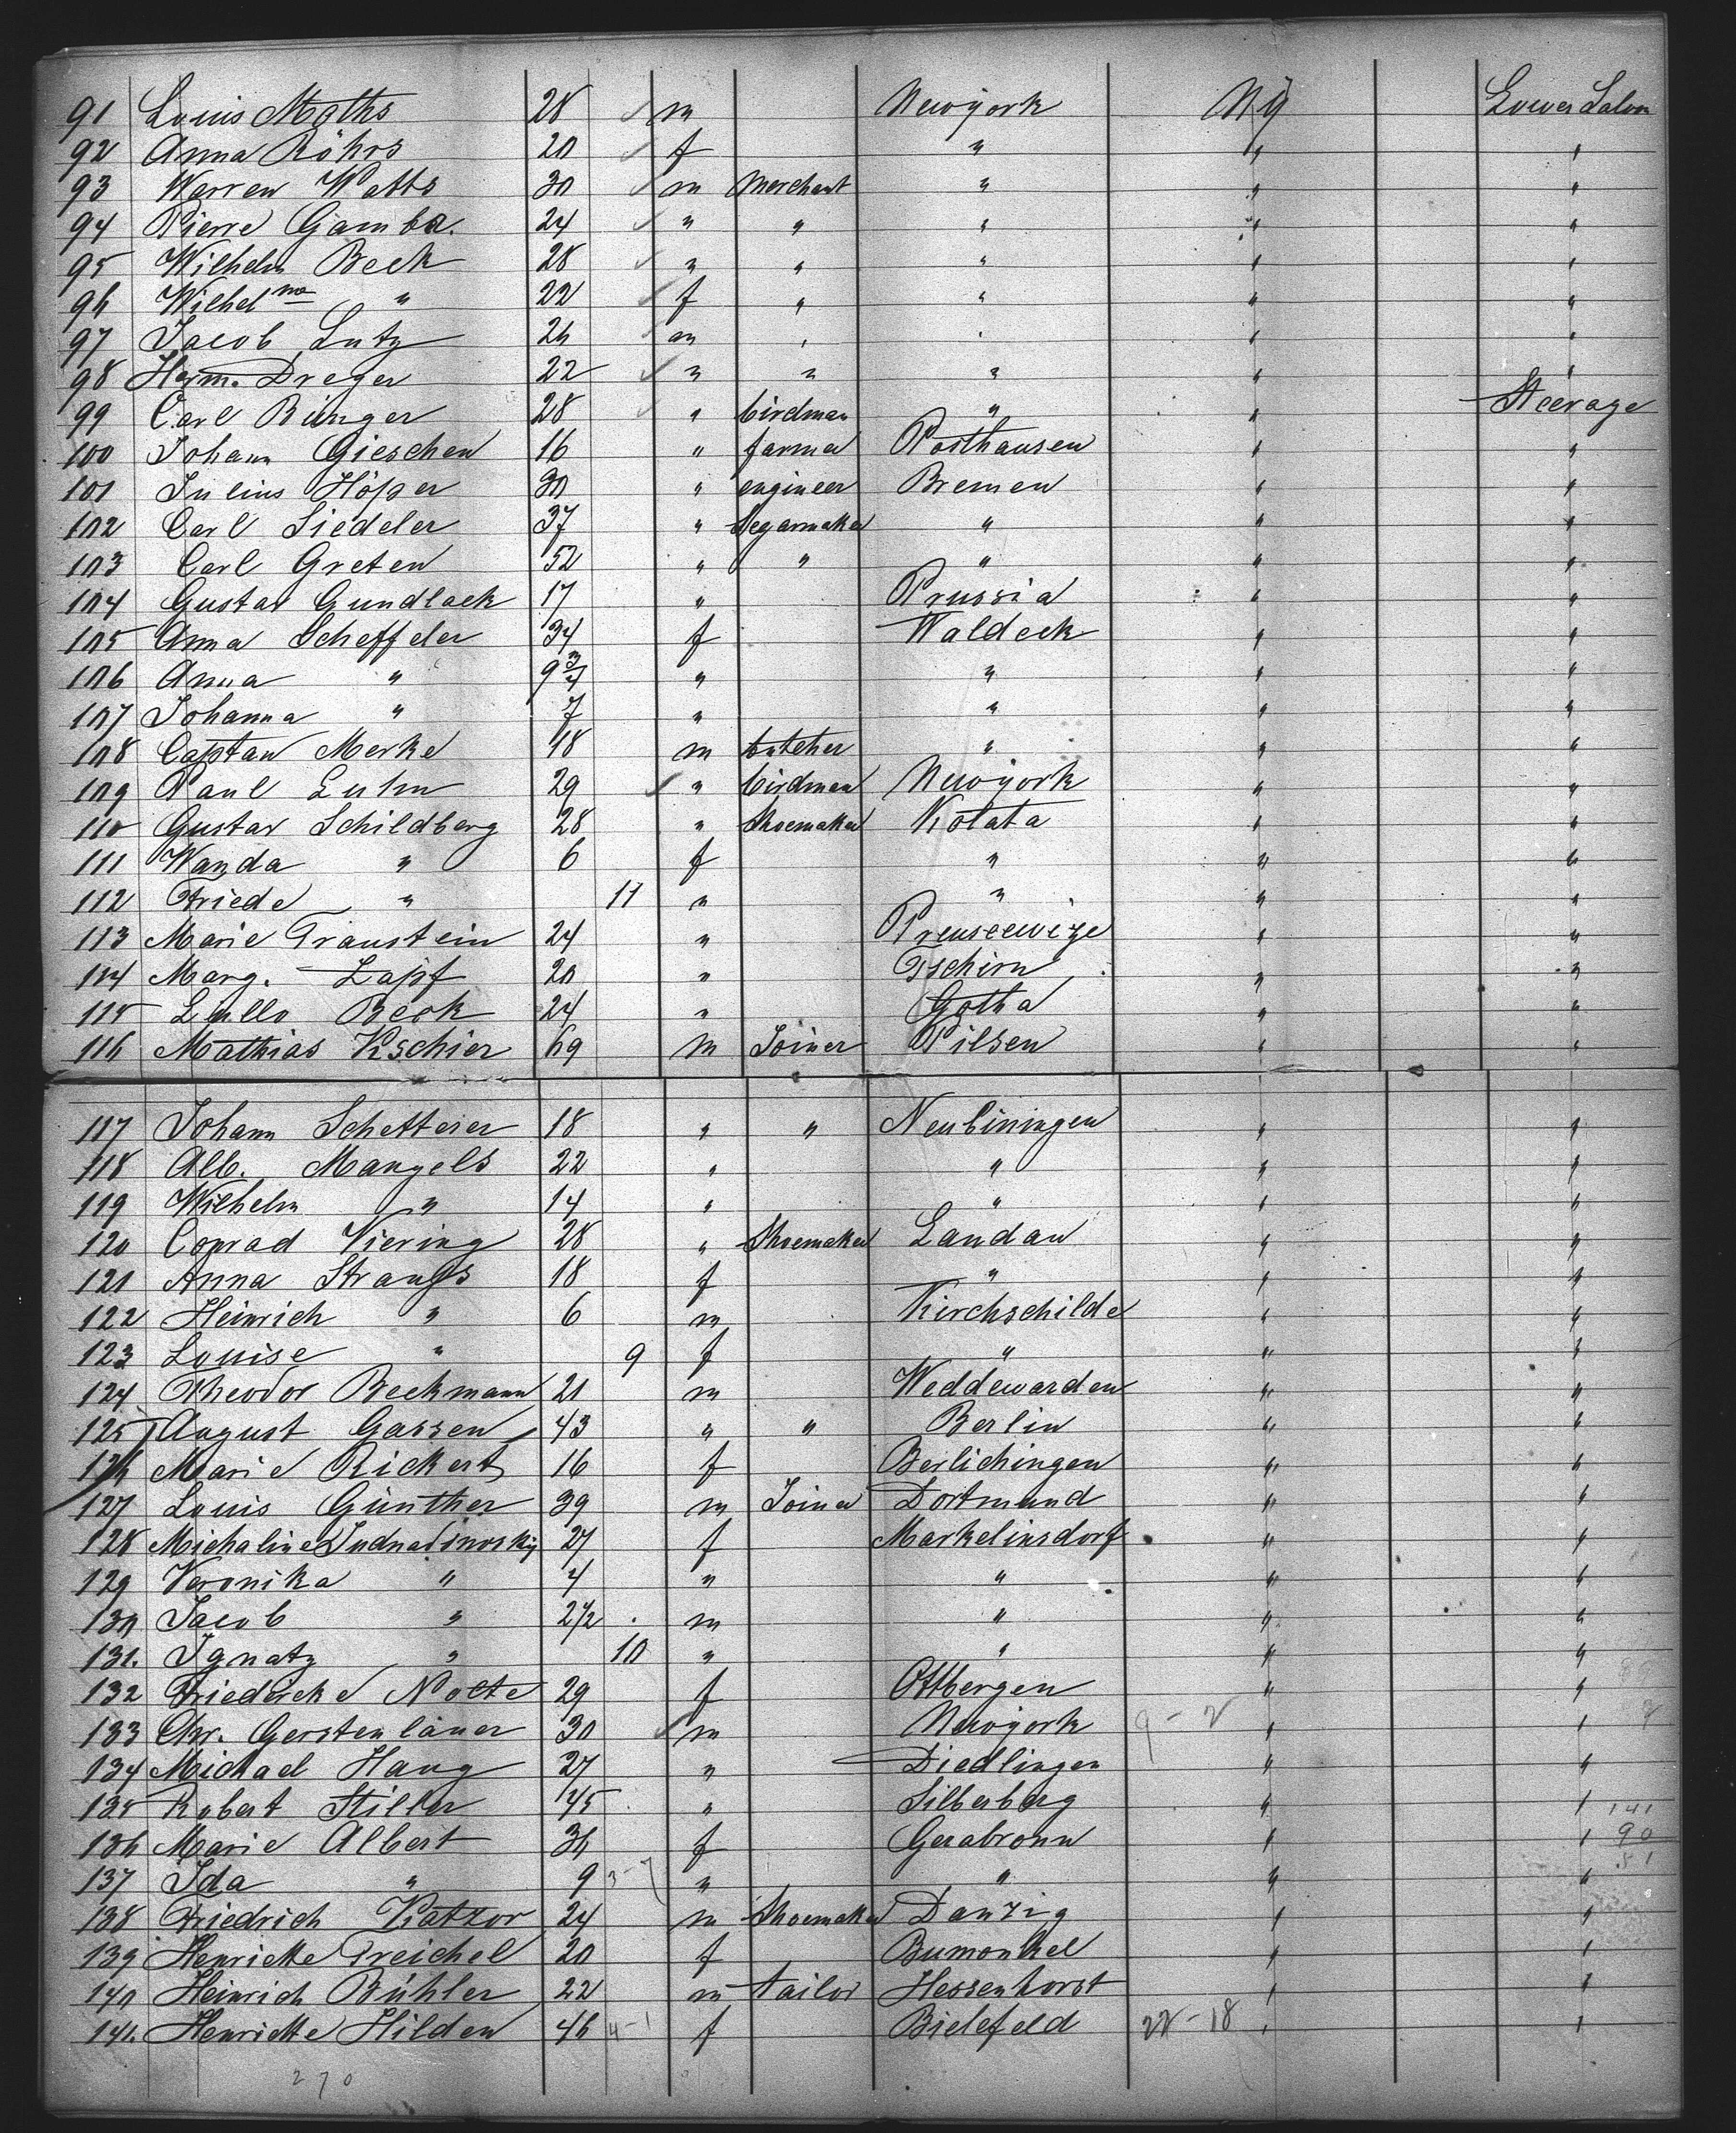 91 Louis Moths 28 m Newyork NY Lower Salon
92 Anna Röhrs 20 f " " "
93 Warren Watts 30 m Merchant " " "
94 Pierre Gamba. 24 " " " " "
95 Wilhelm Beck 28 " " " " "
96 Wilhelme " 22 f " " " "
97 Jacob Lutz 26 m " " " "
98 Herm. Dreger 22 " " " " "
99 Carl Bünger 28 " birdman " " Steerage
100 Johann Gieschen 16 " farmer Posthausen " "
101 Julius Höper 30 " engineer Bremen " "
102 Carl Siedeler 37 " Segarmaker " " "
103 Carl Greten 52 " " " " "
104 Gustav Gundlack 17 " Prussia " "
105 Anna Scheffeler 34 f Waldeck " "
106 Anna " 9 3/4 " " " "
107 Johanna " 7 " " " "
108 Captan Merke 18 m butcher " " "
109 Paul Luhm 29 " birdman Newyork " "
110 Gustav Schildberg 28 " Shoemaker Kolata " "
111 Wanda " 6 f " " "
112 Friede " 11 " " " "
113 Marie Traustein 24 " " "
114 Marg. Zapf 20 " Tschirn " "
115 Beck 24 " Gotha " "
116 Mathias Kschier 69 m Joiner Pilsen " "
117 Johann Schetterer 18 " " " "
118 Alb. Mangels 22 " " " "
119 Wilhelm " 14 " " " "
120 Conrad Viering 28 " Shoemaker Landau " "
121 Anna Strangs 18 f " " "
122 Heinrich " 6 m Kirchschilde " "
123 Louise " 9 f " " "
124 Theodor Beckmann 21 m Weddewarden " "
125 August Gassen 43 " " Berlin " "
126 Marie Rickert 16 f Berlichingen " "
127 Louis Günther 39 m Joiner Dortmund " "
128 Michaline 27 f Markelinsdorf " "
129 Veronika " 4 " " " "
130 Jacob " 2 1/2 m " " "
131. Ignatz " 10 " " " "
132 Friedericke Nolte 29 f Ottbergen " "
133 Chr. Gerstenlauer 30 m Newyork 9-2 " "
134 Michael Haug 27 " Diedlingen " "
135 Robert Stiller 45 " Silberberg " " 141
136 Marie Albert 36 f Gerabronn " " 90
137 Ida " 9 3-7 " " " " 51
138 Friedrich Katzor 24 m Shoemaker Danzig " "
139 Henriette Treichel 20 f Bumonkel " "
140 Heinrich Bühler 22 m tailor Hessenhorst " "
141. Henriette Hilden 46 4-1 f Bielefeld 22-18 " "
270